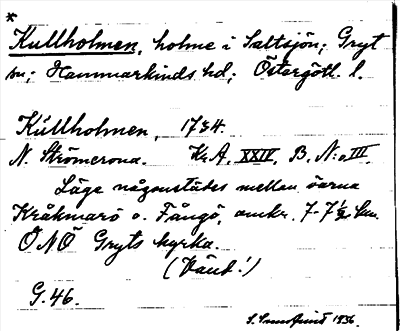 *
Kullholmen, holme i Saltsjön; Gryt
sn; Hammarkinds hd; Östergötl. l.
Kúllholmen, 1734.
N. Strömcrona. Kr.A. XXIV, B. N:o III.
Läge någonstädes mellan öarna
Kråkmarö o. Fångö, omkr. 7-7½ km.
ÖNÖ Gryts kyrka.
(Vänd!)
G. 46.
1936.